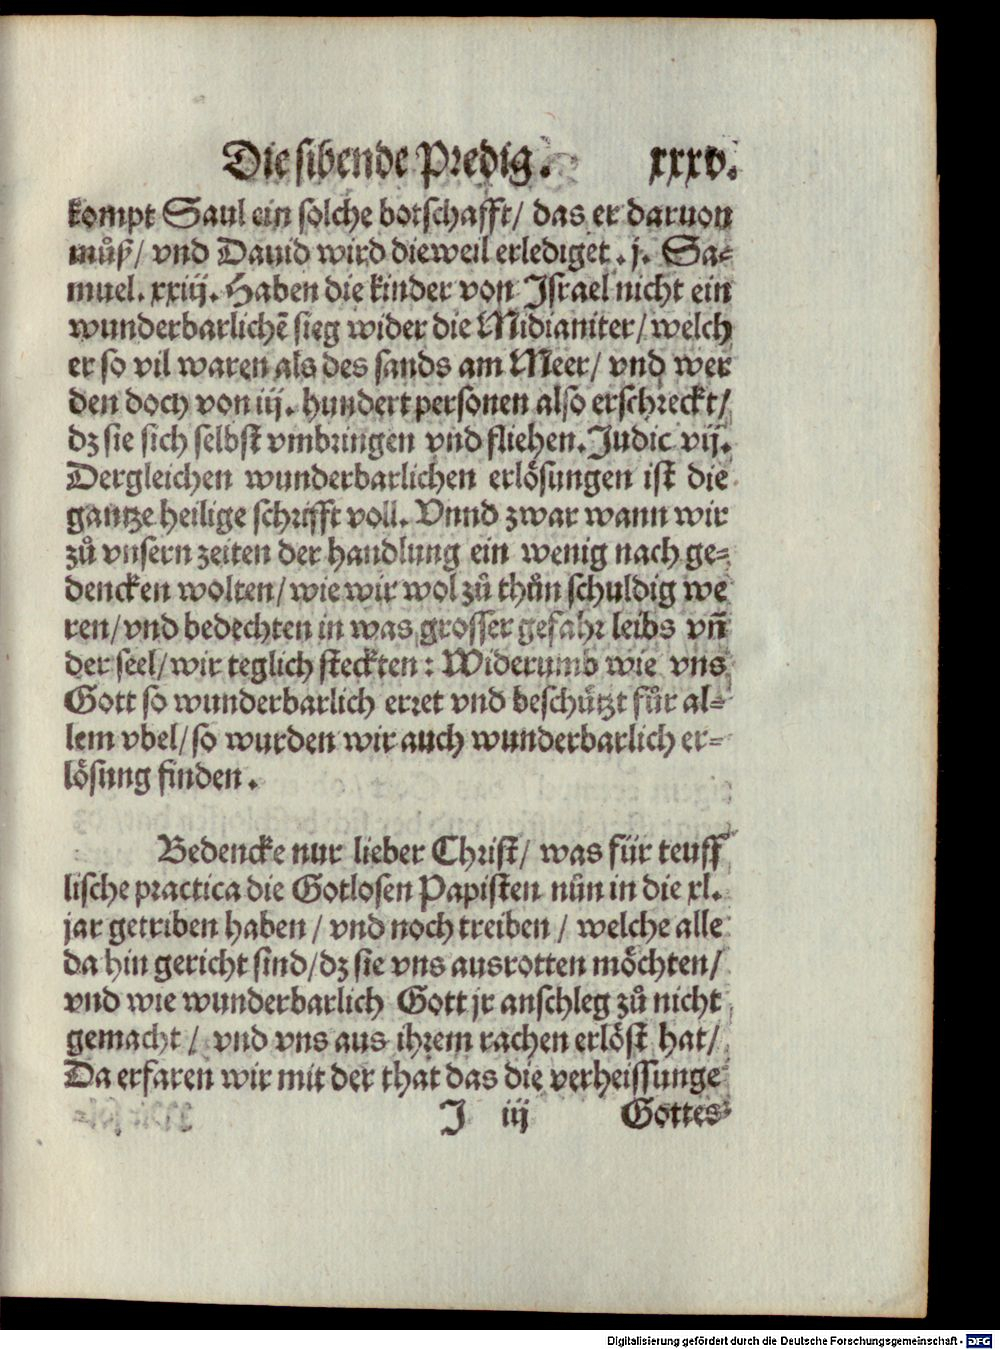 Die sibende Predig. xxxv.
kompt Saul ein solche botschafft/ das er daruon
můß/ vnd Dauid wird dieweil erlediget. j. Sa-
muel. xxiij. Haben die kinder von Israel nicht ein
wunderbarlichē sieg wider die Midianiter/ welch
er so vil waren als des sands am Meer/ vnd wer
den doch von iij. hundert personen also erschreckt/
dz sie sich selbst vmbringen vnd fliehen. Judic vij.
Dergleichen wunderbarlichen erlösungen ist die
gantze heilige schrifft voll. Vnnd zwar wann wir
zů vnsern zeiten der handlung ein wenig nach ge-
dencken wolten/ wie wir wol zů thůn schuldig we
ren/ vnd bedechten in was grosser gefahr leibs vn̄
der seel/ wir teglich steckten: Widerumb wie vns
Gott so wunderbarlich erret vnd beschützt für al-
lem vbel/ so wurden wir auch wunderbarlich er-
lösung finden.
Bedencke nur lieber Christ/ was für teuff
lische practica die Gotlosen Papisten nůn in die xl.
jar getriben haben/ vnd noch treiben/ welche alle
da hin gericht sind/ dz sie vns ausrotten möchten/
vnd wie wunderbarlich Gott jr anschleg zů nicht
gemacht/ vnd vns aus ihrem rachen erlöst hat/
Da erfaren wir mit der that das die verheissunge
J iij Gottes
Digitalisierung gefördert durch die Deutsche Forschungsgemeinschaft - DFG